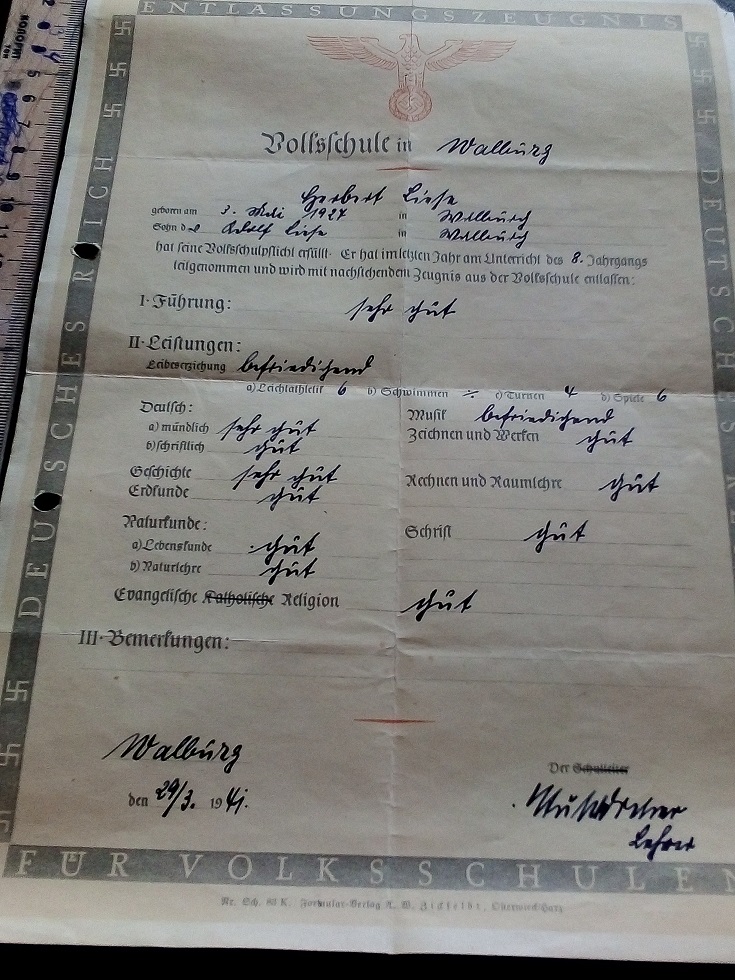 ENTLASSUNGSZEUGNIS
DEUTSCHES REICH
Volksschule in Walburg
Herbert Liese
geboren am 3. Mai 1927 in Walburg
Sohn d Adolf Liese in Walburg
hat seine Volksschulpflicht erfüllt. Er hat im letzten Jahr am Unterricht des 8. Jahrgangs
teilgenommen und wird mit nachstehendem Zeugnis aus der Volksschule entlassen:
I. Führung: sehr gut
II. Leistungen:
Leibeserziehung befriedigend
a) Leichtathletik 6 b) Schwimmen ÷ c) Turnen 4 d) Spiele 6
Deutsch:
a) mündlich sehr gut
b) schriftlich gut
Geschichte sehr gut
Erdkunde gut
Naturkunde:
a) Lebenskunde gut
b) Naturlehre gut
Musik befriedigend
Zeichnen und Werken gut
Rechnen und Raumlehre gut
Schrift gut
Evangelische Katholische Religion gut
III. Bemerkungen:
Walburg
den 29/3. 1941.
Der Schulleiter
Lehrer
DEUTSCHES
FÜR VOLKSSCHULEN
Nr. Sch. 80 K. Formular-Verlag A. W. Zickfeldt, Osterwieck-Harz